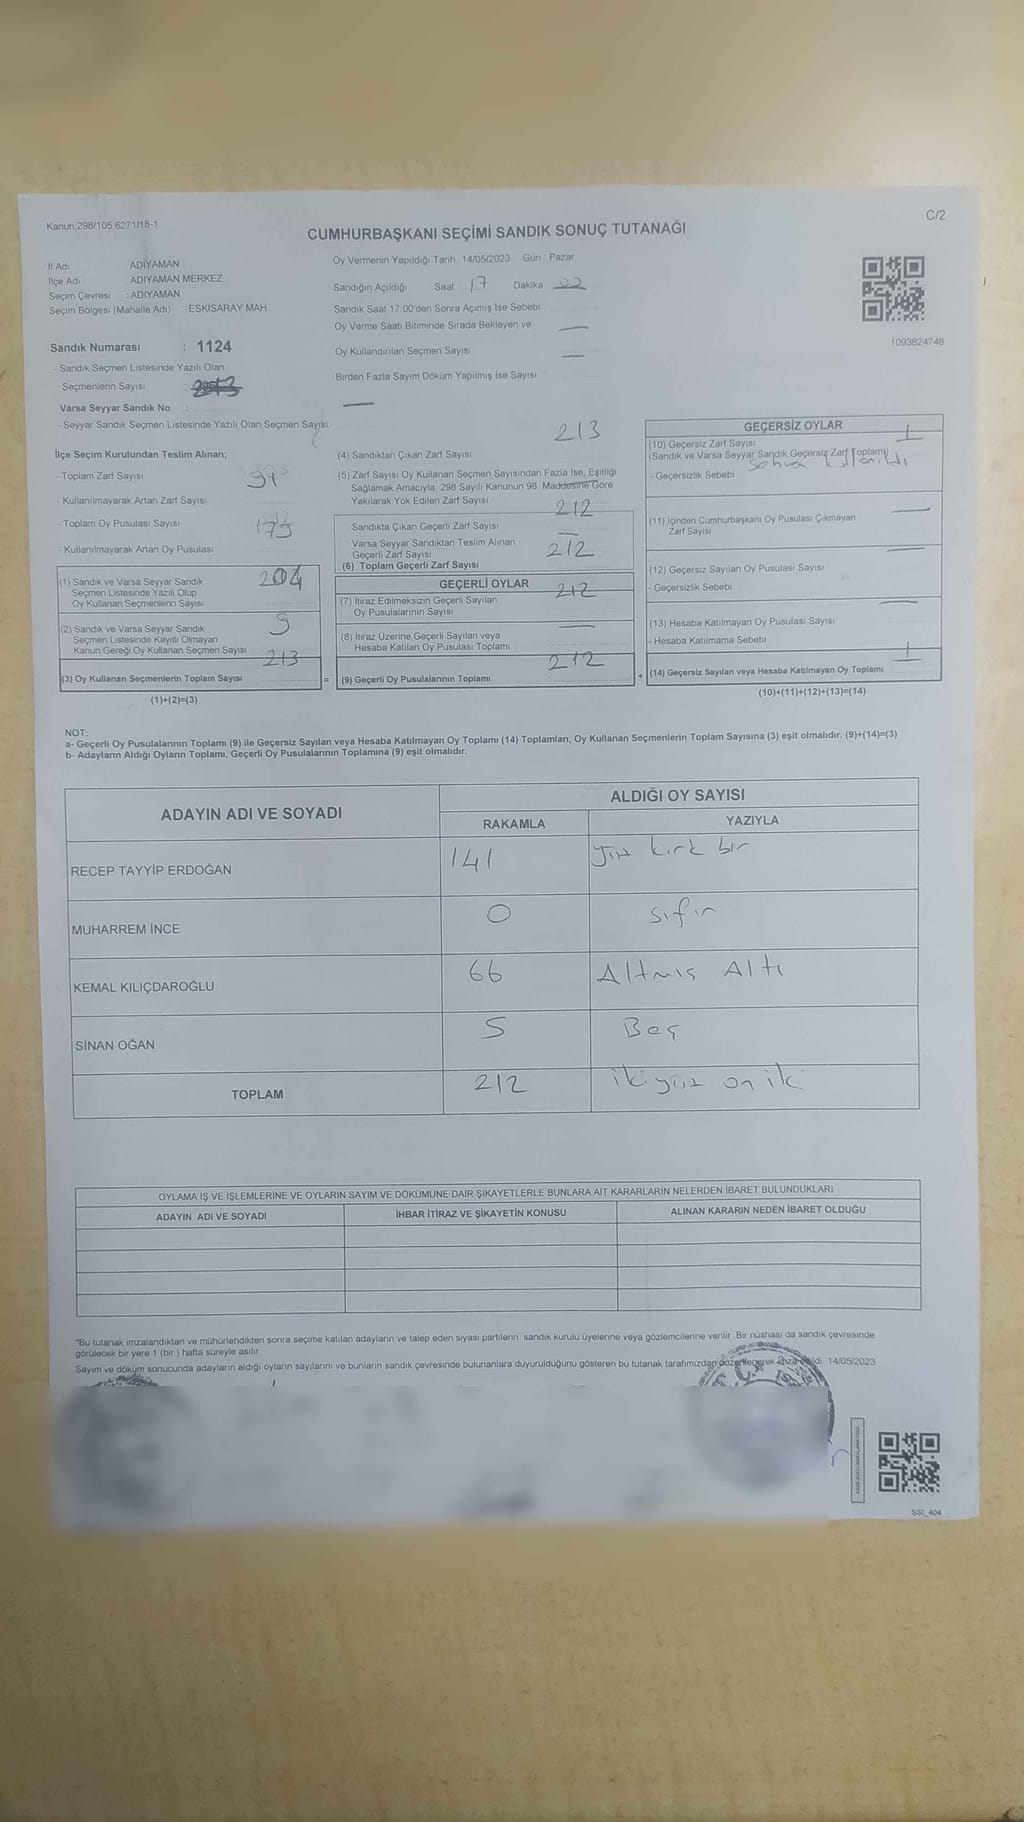 Kanun:298/105,6271/18-1
C/2
CUMHURBAŞKANI SEÇİMİ SANDIK SONUÇ TUTANAĞI
İl Adı ADIYAMAN
İlçe Adı ADIYAMAN MERKEZ
Seçim Çevresi : ADIYAMAN
Seçim Bölgesi (Mahalle Adı) ESKİSARAY MAH.
Sandık Numarası : 1124
- Sandık Seçmen Listesinde Yazılı Olan
Seçmenlerin Sayısı :
Varsa Seyyar Sandık No :
- Seyyar Sandık Seçmen Listesinde Yazılı Olan Seçmen Sayısı
Oy Vermenin Yapıldığı Tarih: 14/05/2023 Gün Pazar
Sandığın Açıldığı Saat 17 Dakika 02
Sandık Saat 17.00'den Sonra Açımış İse Sebebi
Oy Verme Saati Bitiminde Sırada Bekleyen ve
Oy Kullandırılan Seçmen Sayısı
Birden Fazla Sayım Döküm Yapılmış İse Sayısı
1093824748
İlçe Seçim Kurulundan Teslim Alınan;
- Toplam Zarf Sayısı
- Kullanılmayarak Artan Zarf Sayısı
- Toplam Oy Pusulası Sayısı
- Kullanılmayarak Artan Oy Pusulası
(1) Sandık ve Varsa Seyyar Sandık 204
Seçmen Listesinde Yazılı Olup
Oy Kullanan Seçmenlerin Sayısı
(2) Sandık ve Varsa Seyyar Sandık 9
Seçmen Listesinde Kayıtlı Olmayan
Kanun Gereği Oy Kullanan Seçmen Sayısı
(3) Oy Kullanan Seçmenlerin Toplam Sayısı 213
(1)+(2)=(3)
(4) Sandıktan Çıkan Zarf Sayısı 213
(5) Zarf Sayısı Oy Kullanan Seçmen Sayısından Fazla İse, Eşitliği
Sağlamak Amacıyla, 298 Sayılı Kanunun 98. Maddesine Göre
Yakılarak Yok Edilen Zarf Sayısı
Sandıkta Çıkan Geçerli Zarf Sayısı 212
Varsa Seyyar Sandıktan Teslim Alınan
Geçerli Zarf Sayısı
(6) Toplam Geçerli Zarf Sayısı 212
GEÇERLİ OYLAR
(7) İtiraz Edilmeksizin Geçerli Sayılan 212
Oy Pusulalarının Sayısı
(8) İtiraz Üzerine Geçerli Sayılan veya
Hesaba Katılan Oy Pusulası Toplamı
= (9) Geçerli Oy Pusulalarının Toplamı 212
GEÇERSİZ OYLAR
(10) Geçersiz Zarf Sayısı 1
(Sandık ve Varsa Seyyar Sandık Geçersiz Zarf Toplamı)
- Geçersizlik Sebebi Sehven kullanıldı
(11) İçinden Cumhurbaşkanı Oy Pusulası Çıkmayan
Zarf Sayısı
(12) Geçersiz Sayılan Oy Pusulası Sayısı
- Geçersizlik Sebebi
(13) Hesaba Katılmayan Oy Pusulası Sayısı
- Hesaba Katılmama Sebebi
+ (14) Geçersiz Sayılan veya Hesaba Katılmayan Oy Toplamı 1
(10)+(11)+(12)+(13)=(14)
NOT:
a- Geçerli Oy Pusulalarının Toplamı (9) ile Geçersiz Sayılan veya Hesaba Katılmayan Oy Toplamı (14) Toplamları, Oy Kullanan Seçmenlerin Toplam Sayısına (3) eşit olmalıdır. (9)+(14)=(3)
b- Adayların Aldığı Oyların Toplamı, Geçerli Oy Pusulalarının Toplamına (9) eşit olmalıdır.
ADAYIN ADI VE SOYADI ALDIĞI OY SAYISI
RAKAMLA YAZIYLA
RECEP TAYYİP ERDOĞAN 141 yüz kırk bir
MUHARREM İNCE 0 sıfır
KEMAL KILIÇDAROĞLU 66 Altmış Altı
SİNAN OĞAN 5 Beş
TOPLAM 212 ikiyüz on iki
OYLAMA İŞ VE İŞLEMLERİNE VE OYLARIN SAYIM VE DÖKÜMÜNE DAİR ŞİKAYETLERLE BUNLARA AİT KARARLARIN NELERDEN İBARET BULUNDUKLARI
ADAYIN ADI VE SOYADI İHBAR İTİRAZ VE ŞİKAYETİN KONUSU ALINAN KARARIN NEDEN İBARET OLDUĞU
*Bu tutanak imzalandıktan ve mühürlendikten sonra seçime katılan adayların ve talep eden siyasi partilerin sandık kurulu üyelerine veya gözlemcilerine verilir. Bir nüshası da sandık çevresinde
görülecek bir yere 1 (bir) hafta süreyle asılır.
Sayım ve döküm sonucunda adayların aldığı oyların sayılarını ve bunların sandık çevresinde bulunanlara duyurulduğunu gösteren bu tutanak tarafımızdan düzenlenerek imza edildi. 14/05/2023
SSI_404